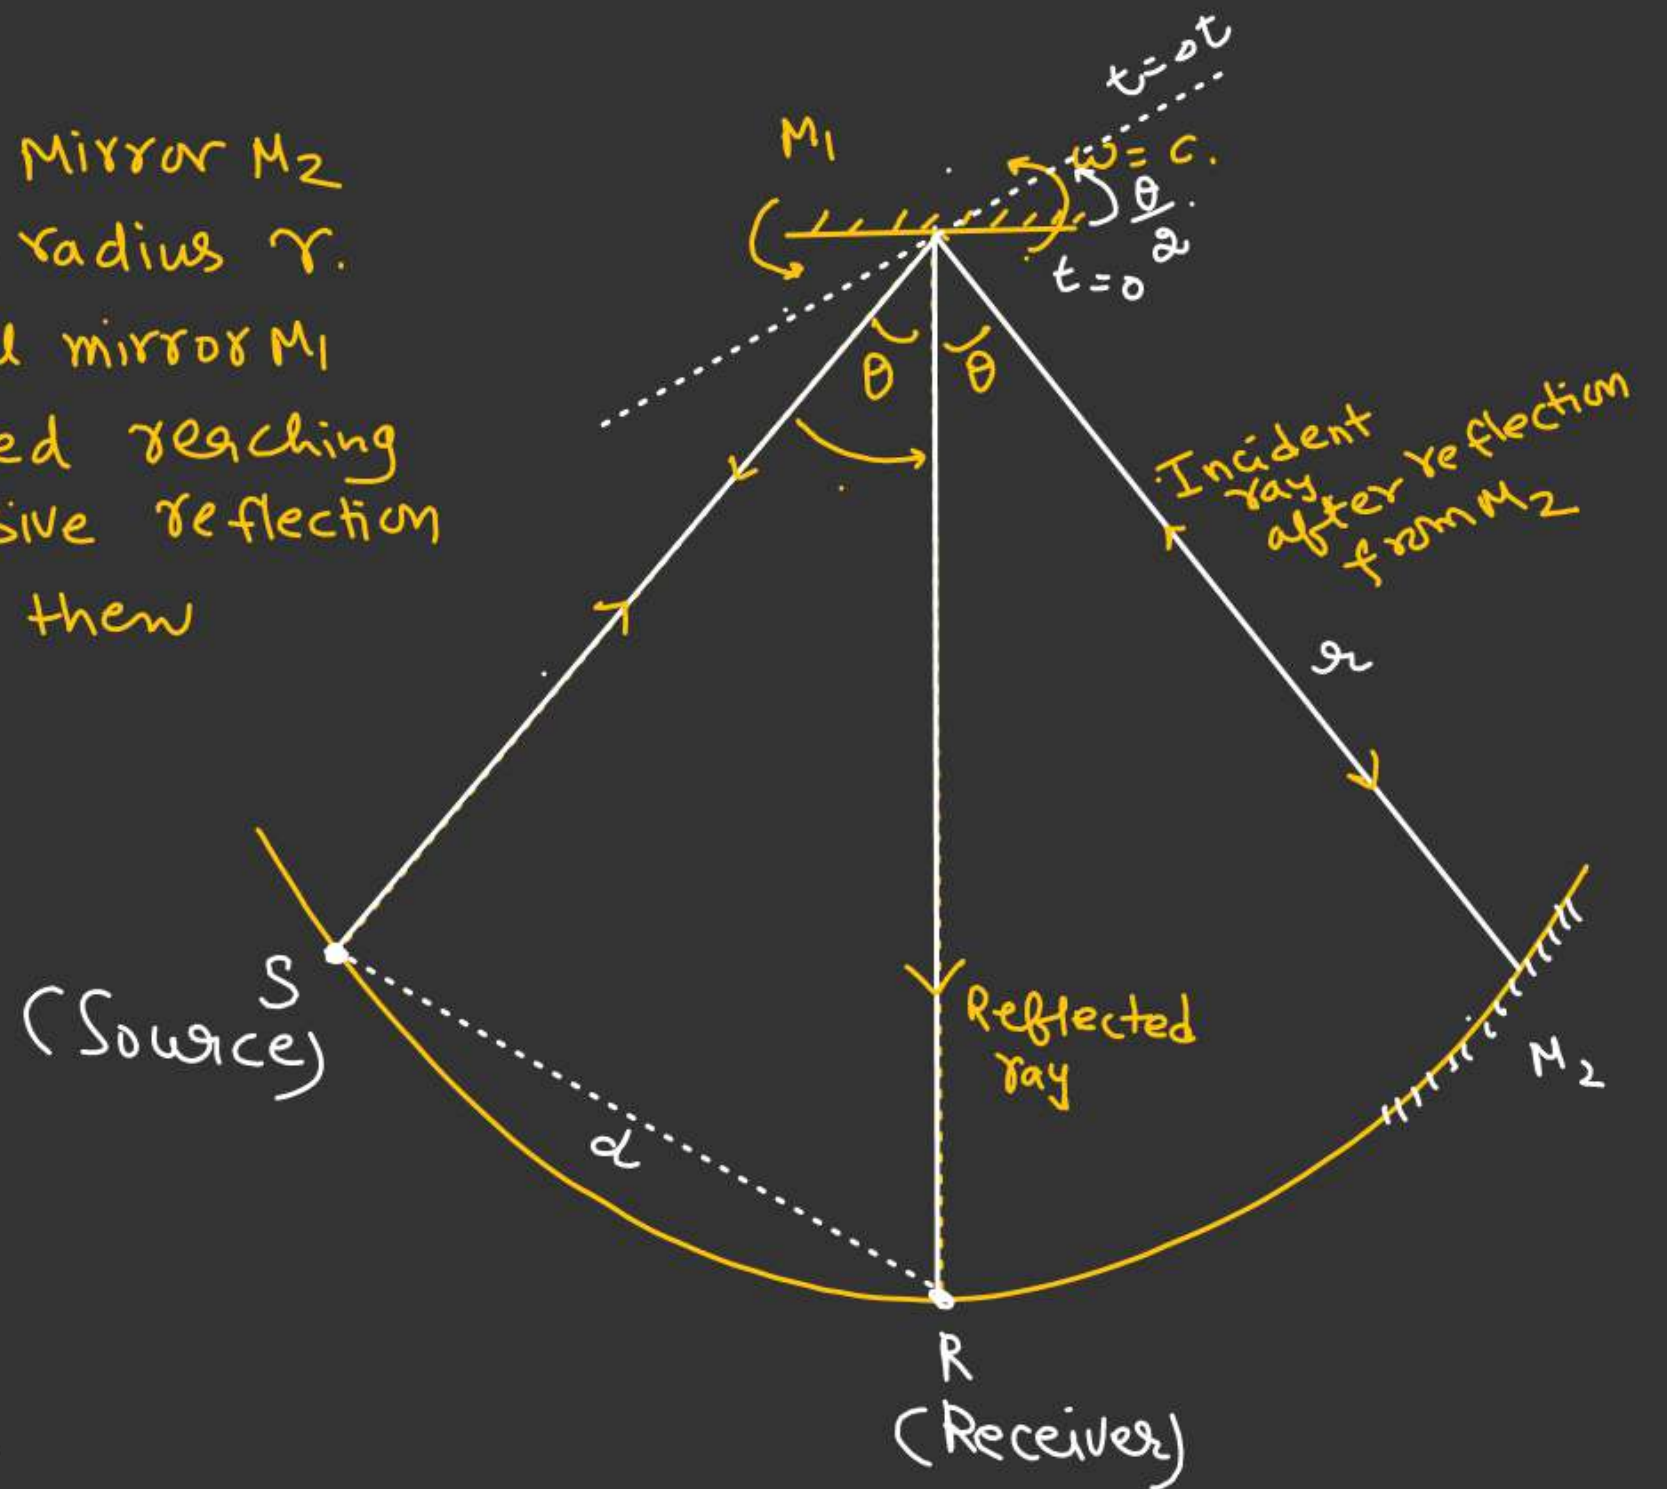 Mirror M2
radius r.
mirror M1
ed reaching
sive reflection
then
M1
t=Δt
ω = c.
θ/2
t=0
θ
θ
Incident
ray
after reflection
from M2
r
S
(Source)
d
Reflected
ray
M2
R
(Receiver)